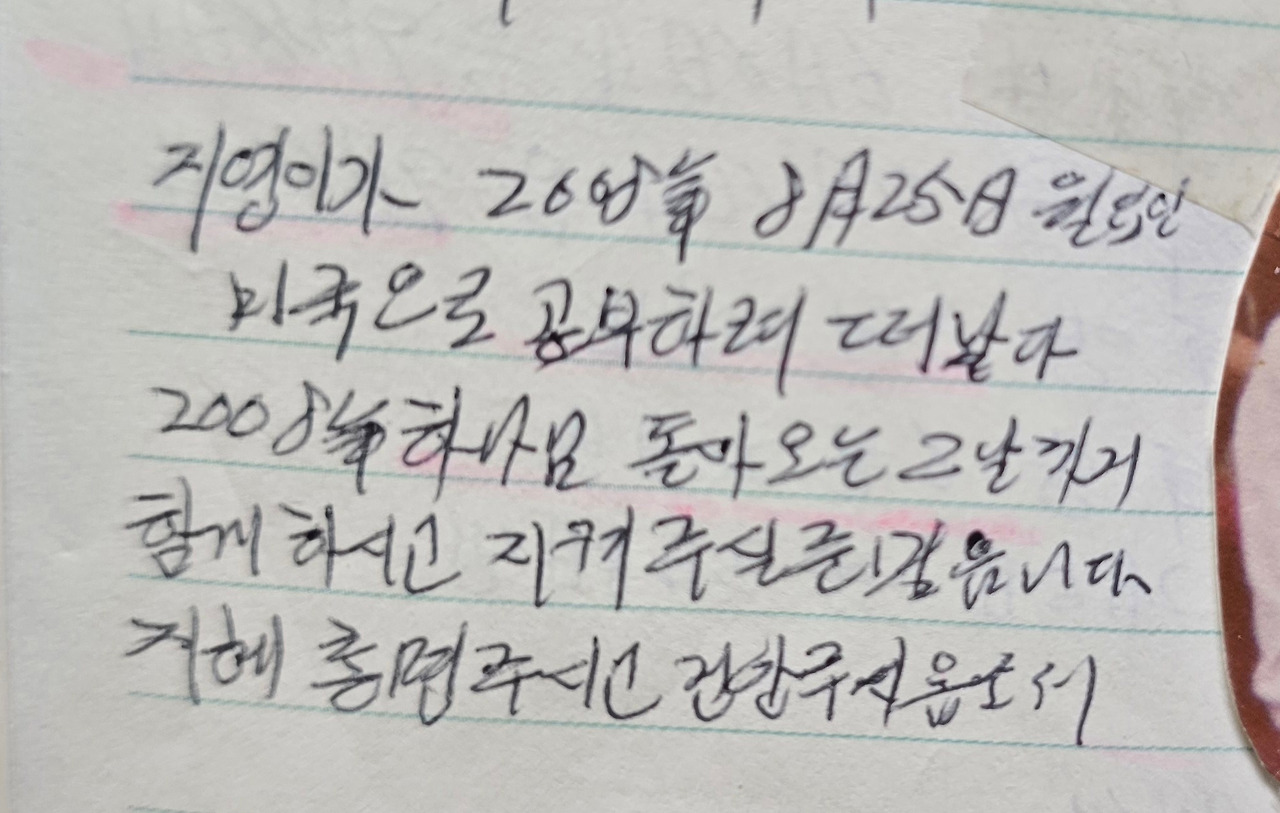 지영이가 2008年 8月25日 월요일
미국으로 공부하려 떠났다
2008年 하나님 돌아오는 그날까지
함께 하시고 지켜 주실줄 믿습니다
지혜 총명주시고 건강주시옵소서